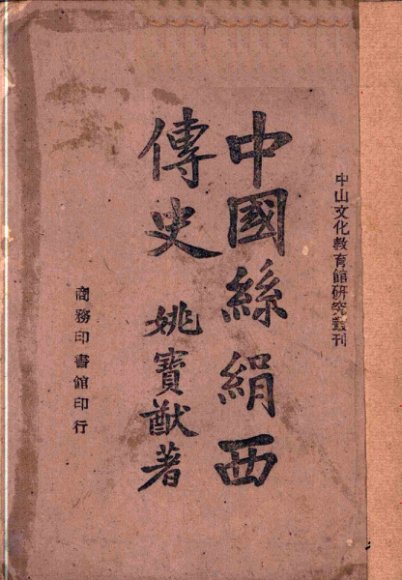 中山文化教育館研究叢刊
中國絲絹西
傳史
姚寶猷著
商務印書館印行